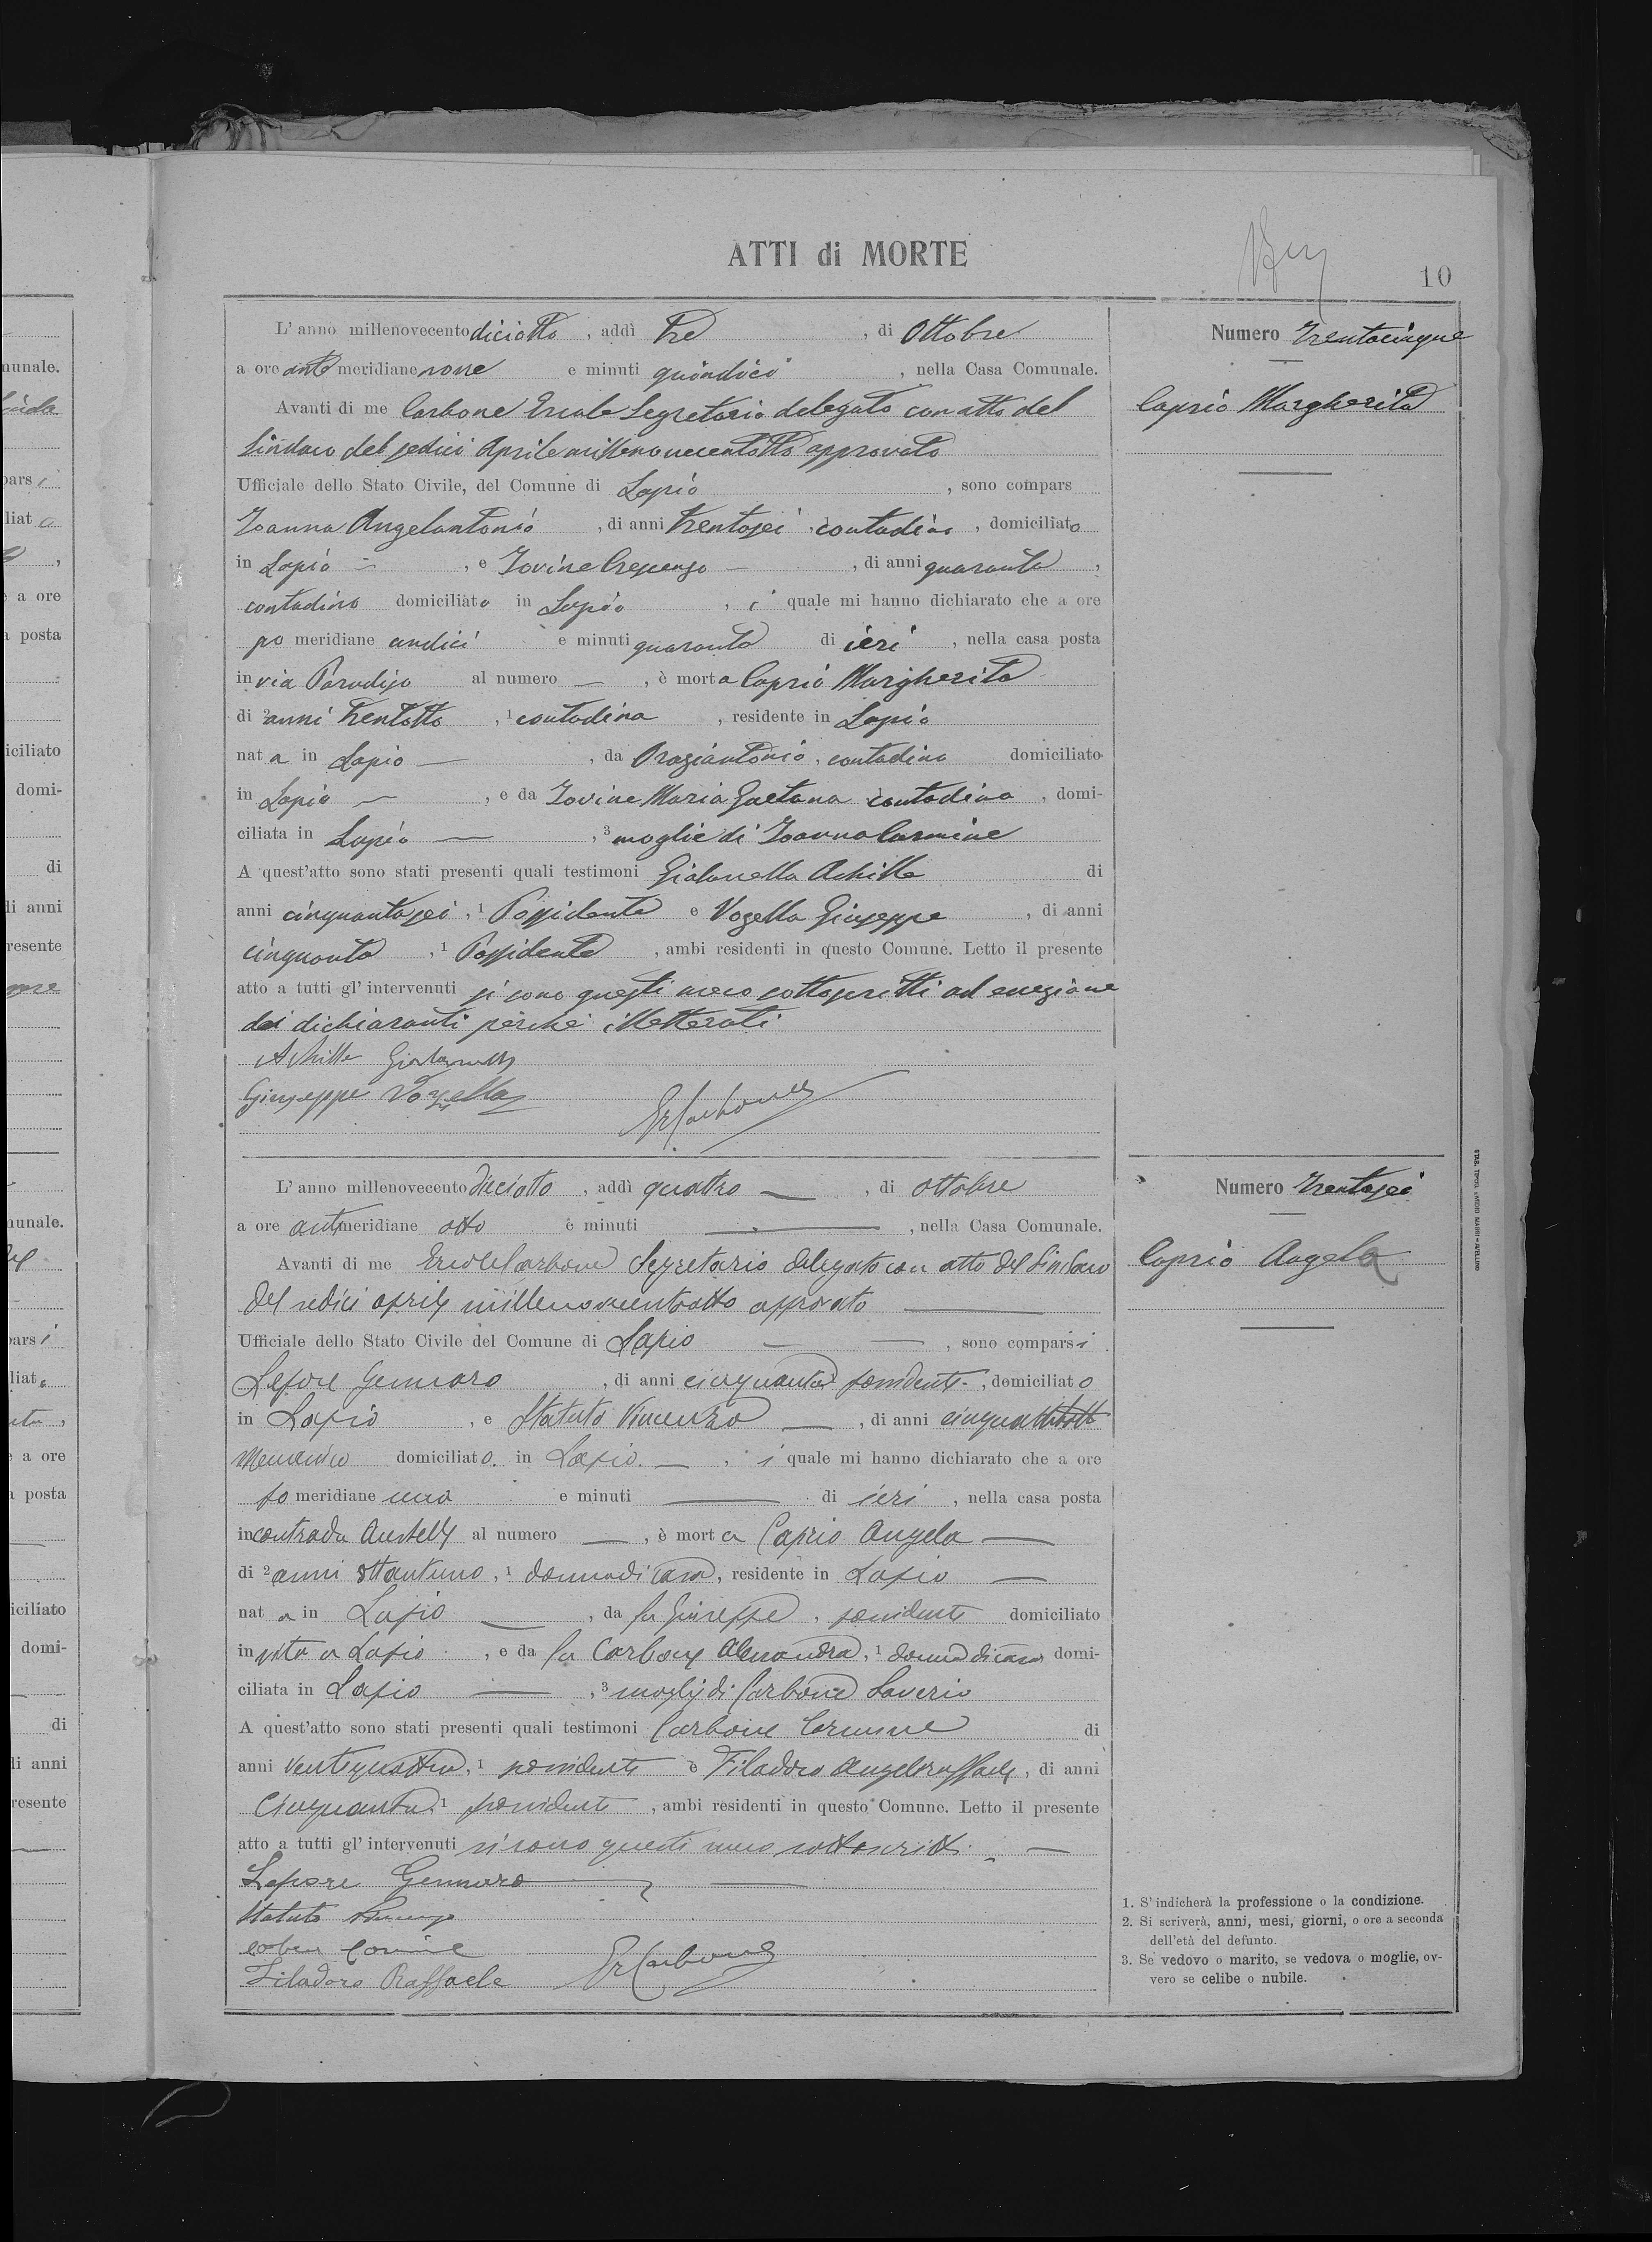 ATTI di MORTE
10
L'anno millenovecento diciotto, addì tre, di Ottobre
a ore ante meridiane nove e minuti quindici, nella Casa Comunale.
Avanti di me Carbone Ercole Segretario delegato con atto del
Sindaco del sedici Aprile millenovecentotto approvato
Ufficiale dello Stato Civile, del Comune di Lapio, sono compars
Ioanna Angelantonio, di anni trentasei, contadino, domiciliato
in Lapio, e Iovine Crescenzo, di anni quaranta,
contadino domiciliato in Lapio, i quale mi hanno dichiarato che a ore
po meridiane undici e minuti quaranta di ieri, nella casa posta
in via Paradiso al numero —, è morta Caprio Margherita
di 2 anni trentotto, 1 contadina, residente in Lapio
nata in Lapio —, da Oraziantonio, contadino domiciliato
in Lapio —, e da Iovine Maria Gaetana contadina, domi-
ciliata in Lapio —, 3 moglie di Ioanna Carmine
A quest'atto sono stati presenti quali testimoni Giolanella Achille di
anni cinquantasei, 1 Possidente e Vozella Giuseppe, di anni
cinquanta, 1 Possidente, ambi residenti in questo Comune. Letto il presente
atto a tutti gl'intervenuti si sono questi meco sottoscritti ad eccezione
dei dichiaranti perchè illetterati
Achille
Giuseppe Vozella
Er Carbone
Numero Trentacinque
Caprio Margherita
L'anno millenovecento dieciotto, addì quattro —, di ottobre
a ore antmeridiane otto e minuti —, nella Casa Comunale.
Avanti di me Ercole Carbone Segretario delegato con atto del Sindaco
del sedici aprile millenovecentootto approvato —
Ufficiale dello Stato Civile del Comune di Lapio —, sono comparsi
Lepore Gennaro, di anni cinquanta possidente, domiciliato
in Lapio, e Statuto Vincenzo —, di anni
domiciliato in Lapio —, i quale mi hanno dichiarato che a ore
po meridiane una e minuti — di ieri, nella casa posta
in contrada al numero —, è morta Caprio Angela —
di 2 anni ottantuno, 1 donna di casa, residente in Lapio —
nata in Lapio —, da fu Giuseppe, possidente domiciliato
in vita a Lapio, e da fu Carbone Alessandra, 1 donna di casa domi-
ciliata in Lapio —, 3 moglie di Carbone Saverio
A quest'atto sono stati presenti quali testimoni Carbone Carmine di
anni ventiquattro, 1 possidente e Filadoro Angeloraffaele, di anni
cinquanta, 1 possidente, ambi residenti in questo Comune. Letto il presente
atto a tutti gl'intervenuti si sono questi meco sottoscritti. —
Lepore Gennaro
Statuto Vincenzo
Carmine
Filadoro Raffaele
Er Carbone
Numero Trentasei
Caprio Angela
1. S'indicherà la professione o la condizione.
2. Si scriverà, anni, mesi, giorni, o ore a seconda
dell'età del defunto.
3. Se vedovo o marito, se vedova o moglie, ov-
vero se celibe o nubile.